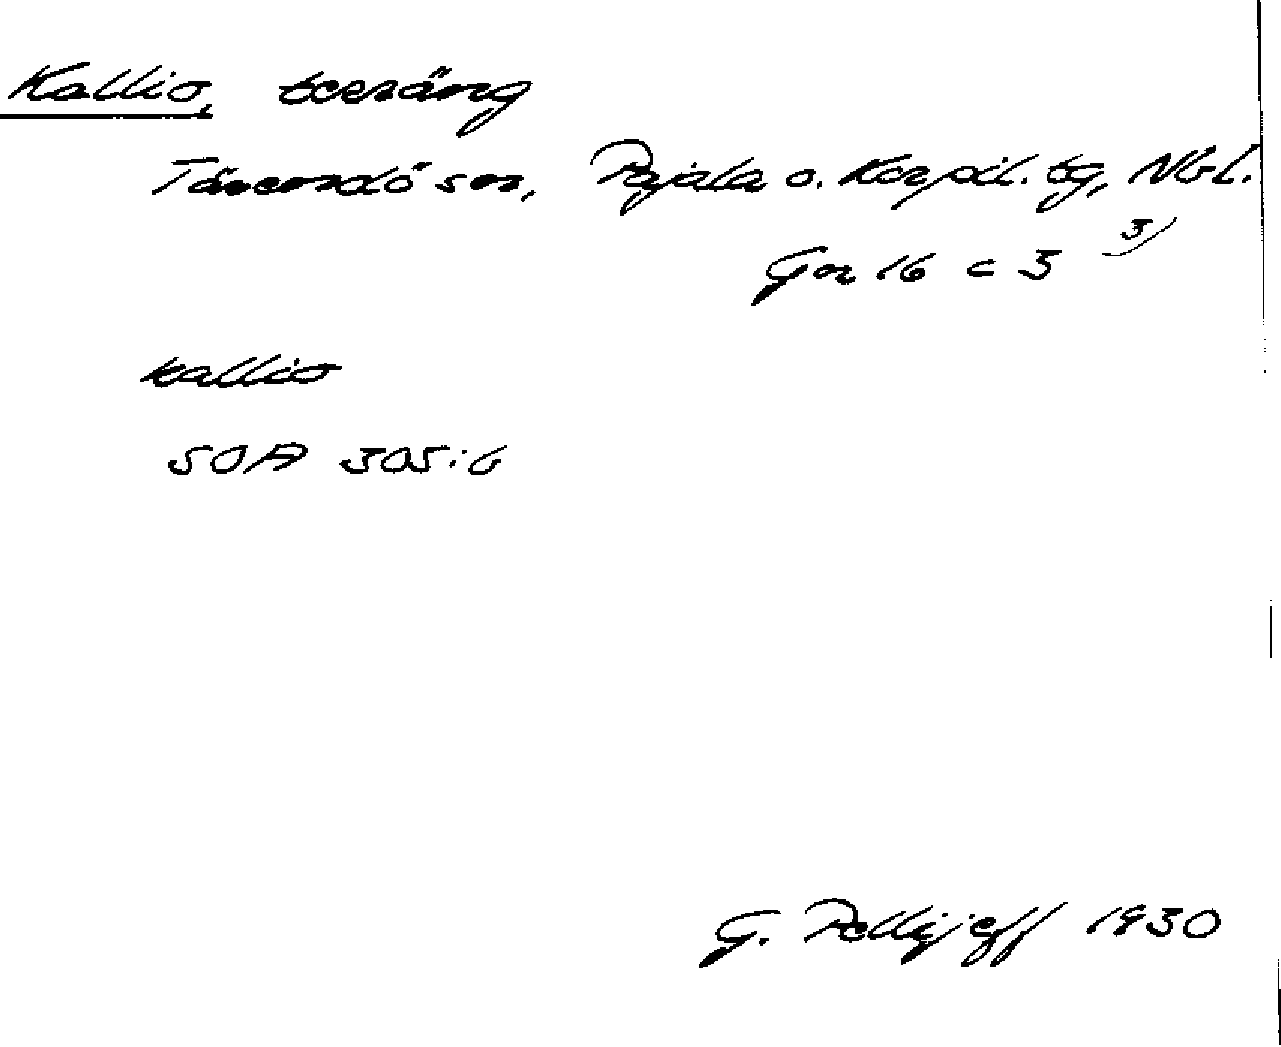 Kallio, teräng
Tärendö sn, Pajala o. Korpil. tg, Nbl.
Gn 16 c 3 3)
kallio
SOA 305:6
G. Pellijeff 1930